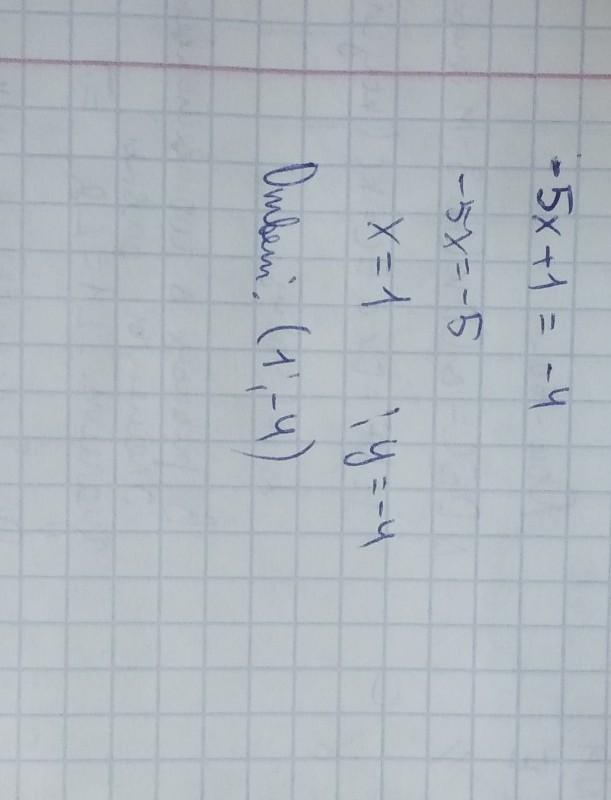 -5x+1=-4
-5x=-5
x=1 ; y=-4
Ответ: (1;-4)